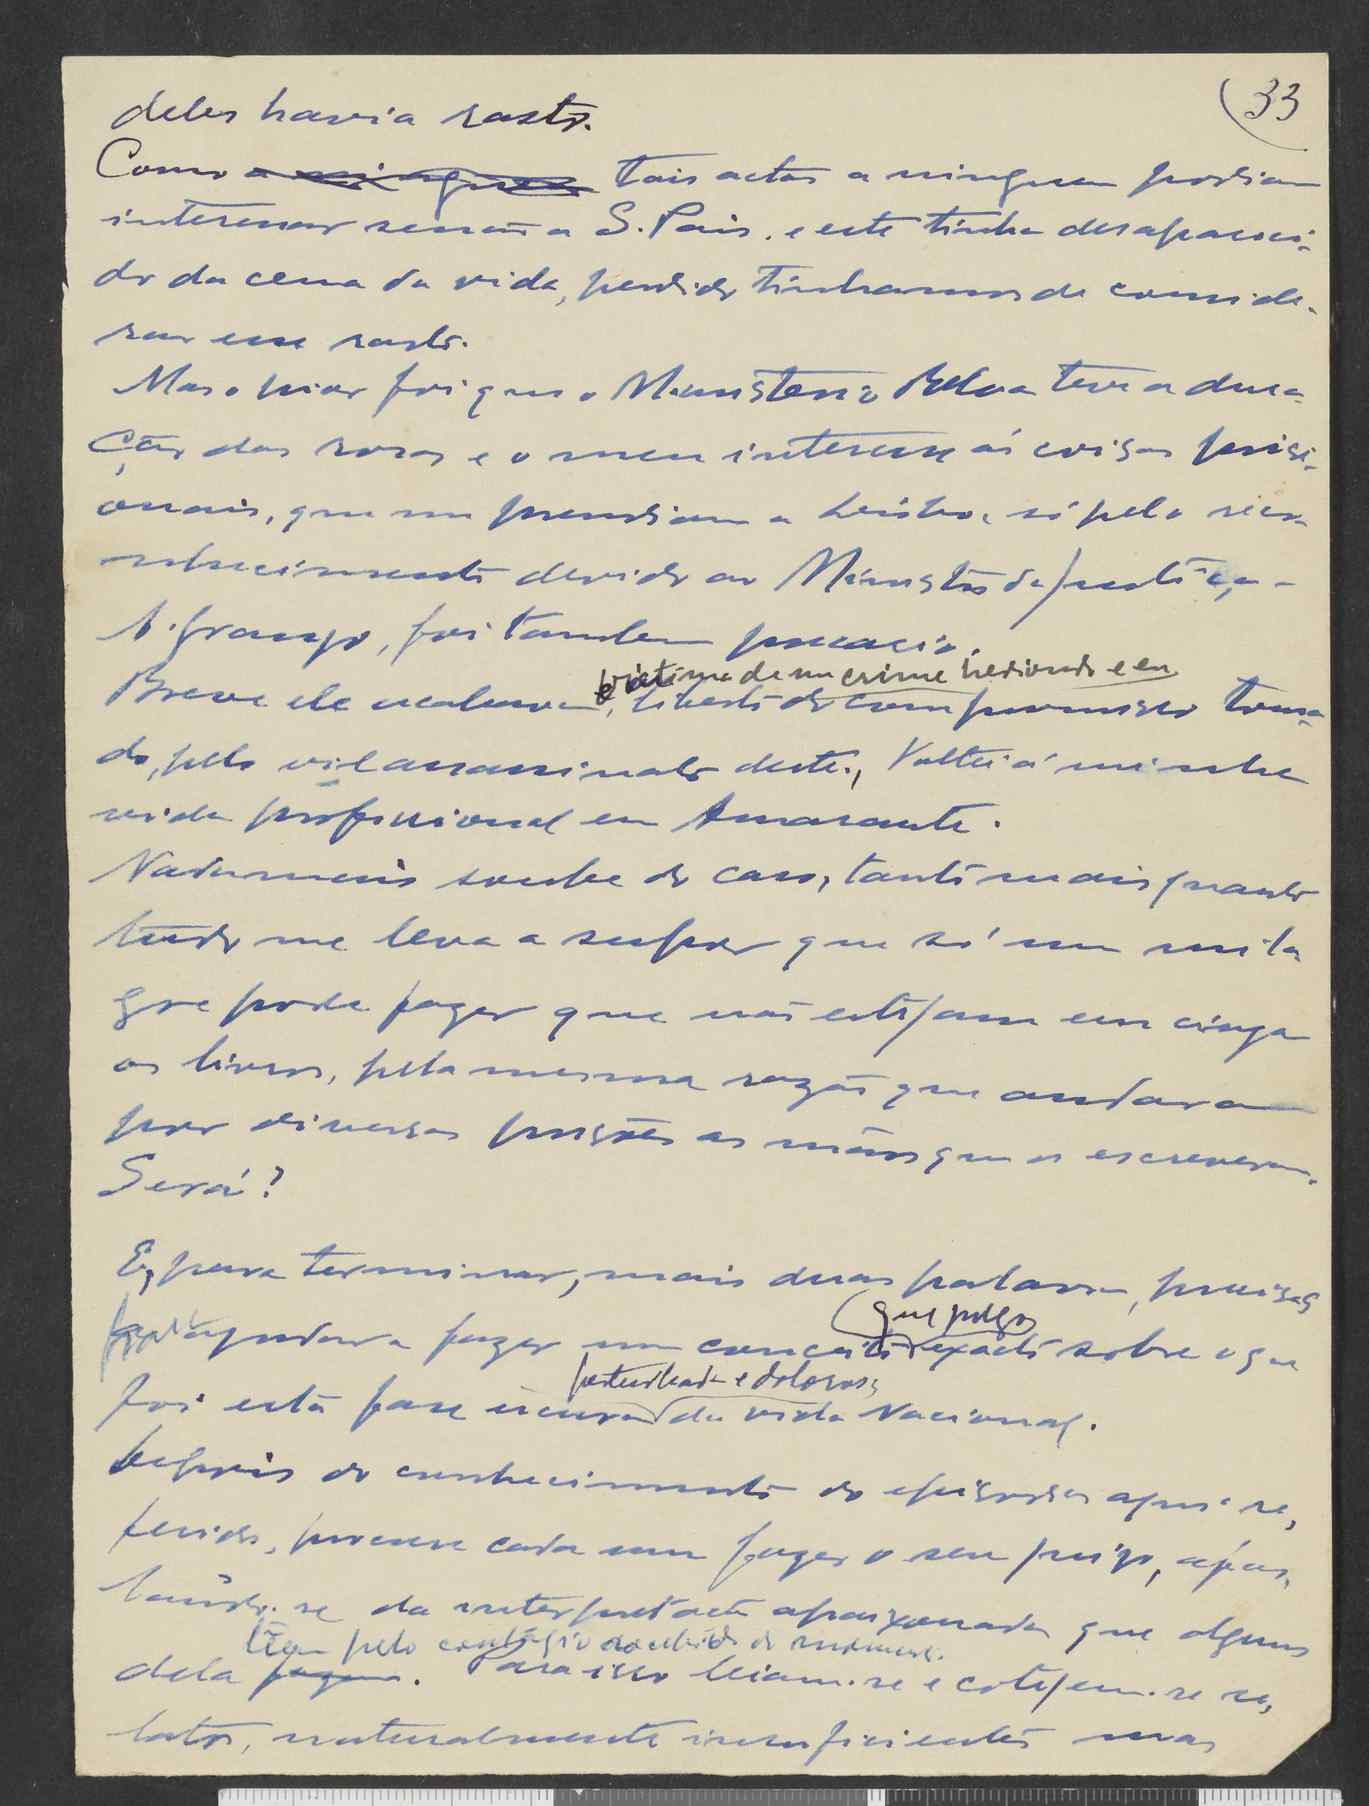 33
deles havia rasto.
Como a ninguem tais actos a ninguem podiam
interessar senão a S. Pais. e este tinha desapareci-
do da cena da vida, perdido tinhamos de conside-
rar esse rasto.
Mas o pior foi que o Ministerio Relvas teve a dura-
ção das rosas e o meu interesse ás coisas prisi-
onais, que me prendiam a Lisboa, só pelo reco-
nhecimento devido ao Ministro da Justiça -
A. Granjo, foi tambem precario.
vitima de um crime hediondo e eu
Breve ele acabava, liberto do compromisso toma-
do, pelo vil assassinato deste, Voltei á minha
vida profissional em Amarante.
Nada mais soube do caso, tanto mais quanto
tudo me leva a supor que só um mila
gre pode fazer que não estejam em cinza
os livros, pela mesma razão que andaram
por diversas prisões as mãos que os escreveram.
Será?
E, para terminar, mais duas palavras, precisas
que julgo
para ajudar a fazer um conceito exacto sobre o que
perturbada e dolorosa
foi esta fase escura da vida Nacional.
Depois do conhecimento do episodio aqui re-
ferido, procure cada um fazer o seu juizo, afas-
tando-se da interpretação apaixonada que alguns
pelo contágio do momento.
dela fazem. Para isso leiam-se e cotejem-se re-
latos, naturalmente insuficientes mas